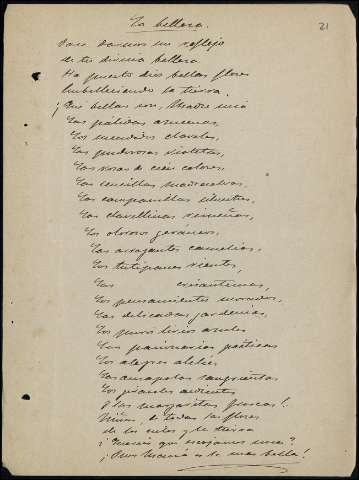 La belleza.
21
Para darnos un reflejo
de tu divina belleza
Ha puesto dios bellas flores
Embelleciendo la tierra.
¡Qué bellas son, Madre mía
Las pálidas azucenas,
Los menudos claveles,
Las pudorosas violetas,
Las rosas de cien colores,
Las sencillas madreselvas,
Las campanillas silvestres,
Las clavellinas
Los olorosos geráneos,
Las arrogantes camelias,
Los tulipanes
Las crisantemas,
Los pensamientos morados,
Las delicadas gardenias,
Los puros lirios azules
Las pasionarias poéticas
Los alegres alelíes
Las amapolas sangrientas
Los
Y las margaritas frescas!
Niños, de todas las flores
de los cielos y la tierra
¿Queréis que escojamos una?
¡Pues María es la mas bella!